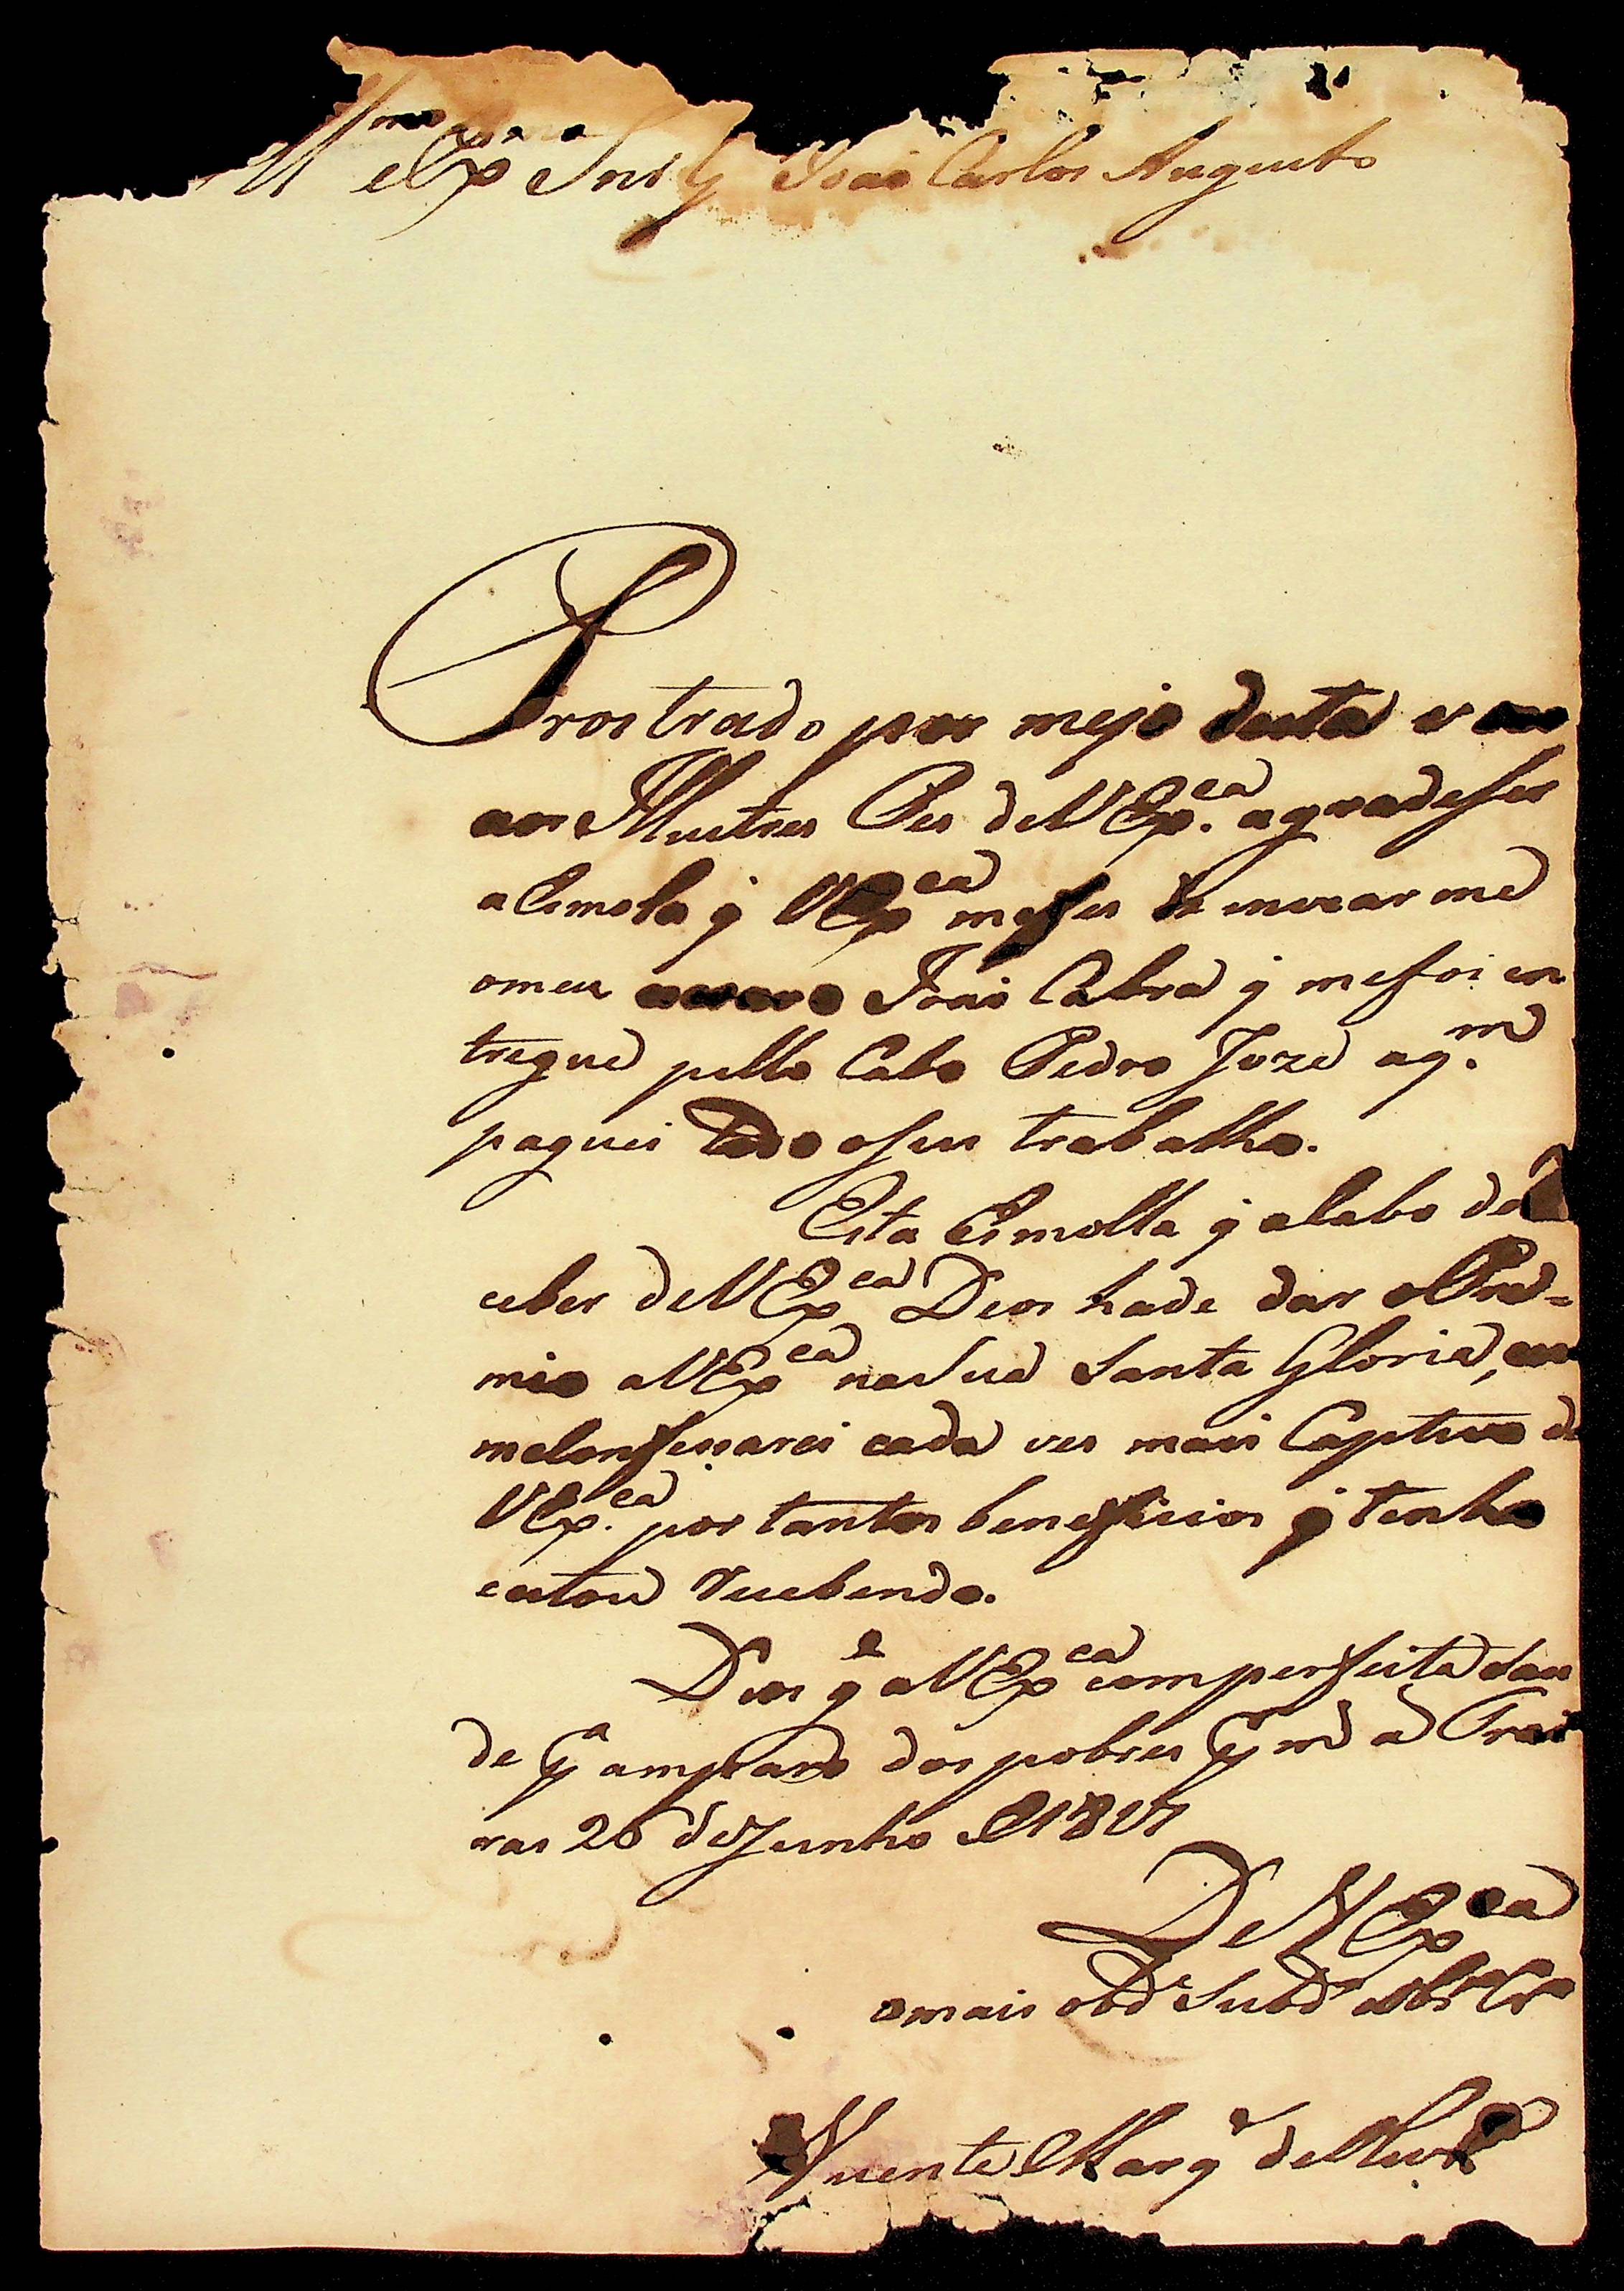 Illmo eExmo Snr G João Carlos Augusto
Prostrado por mejo desta
aos Illustres Pes deVExca agradeser
aEsmola q VExca mefes de enviarme
omeu João Cabra q mefoi en
tregue pello Cabo Pedro Joze aqm
paguei todo oseu trabalho.
Esta Esmolla q acabo de
ceber deVExca Deos hade dar oPre=
mio aVExca naSua Santa Gloria, eu
meConfessarei cada ves mais Captivo de
VExca por tantos beneficios q tenho
eestou Recebendo.
Deos ge aVExca comperfeita sau
de pa amparo dos pobres
ras 26 deJunho
DeVExca
omais obde Subdo
Vicente Marqs de